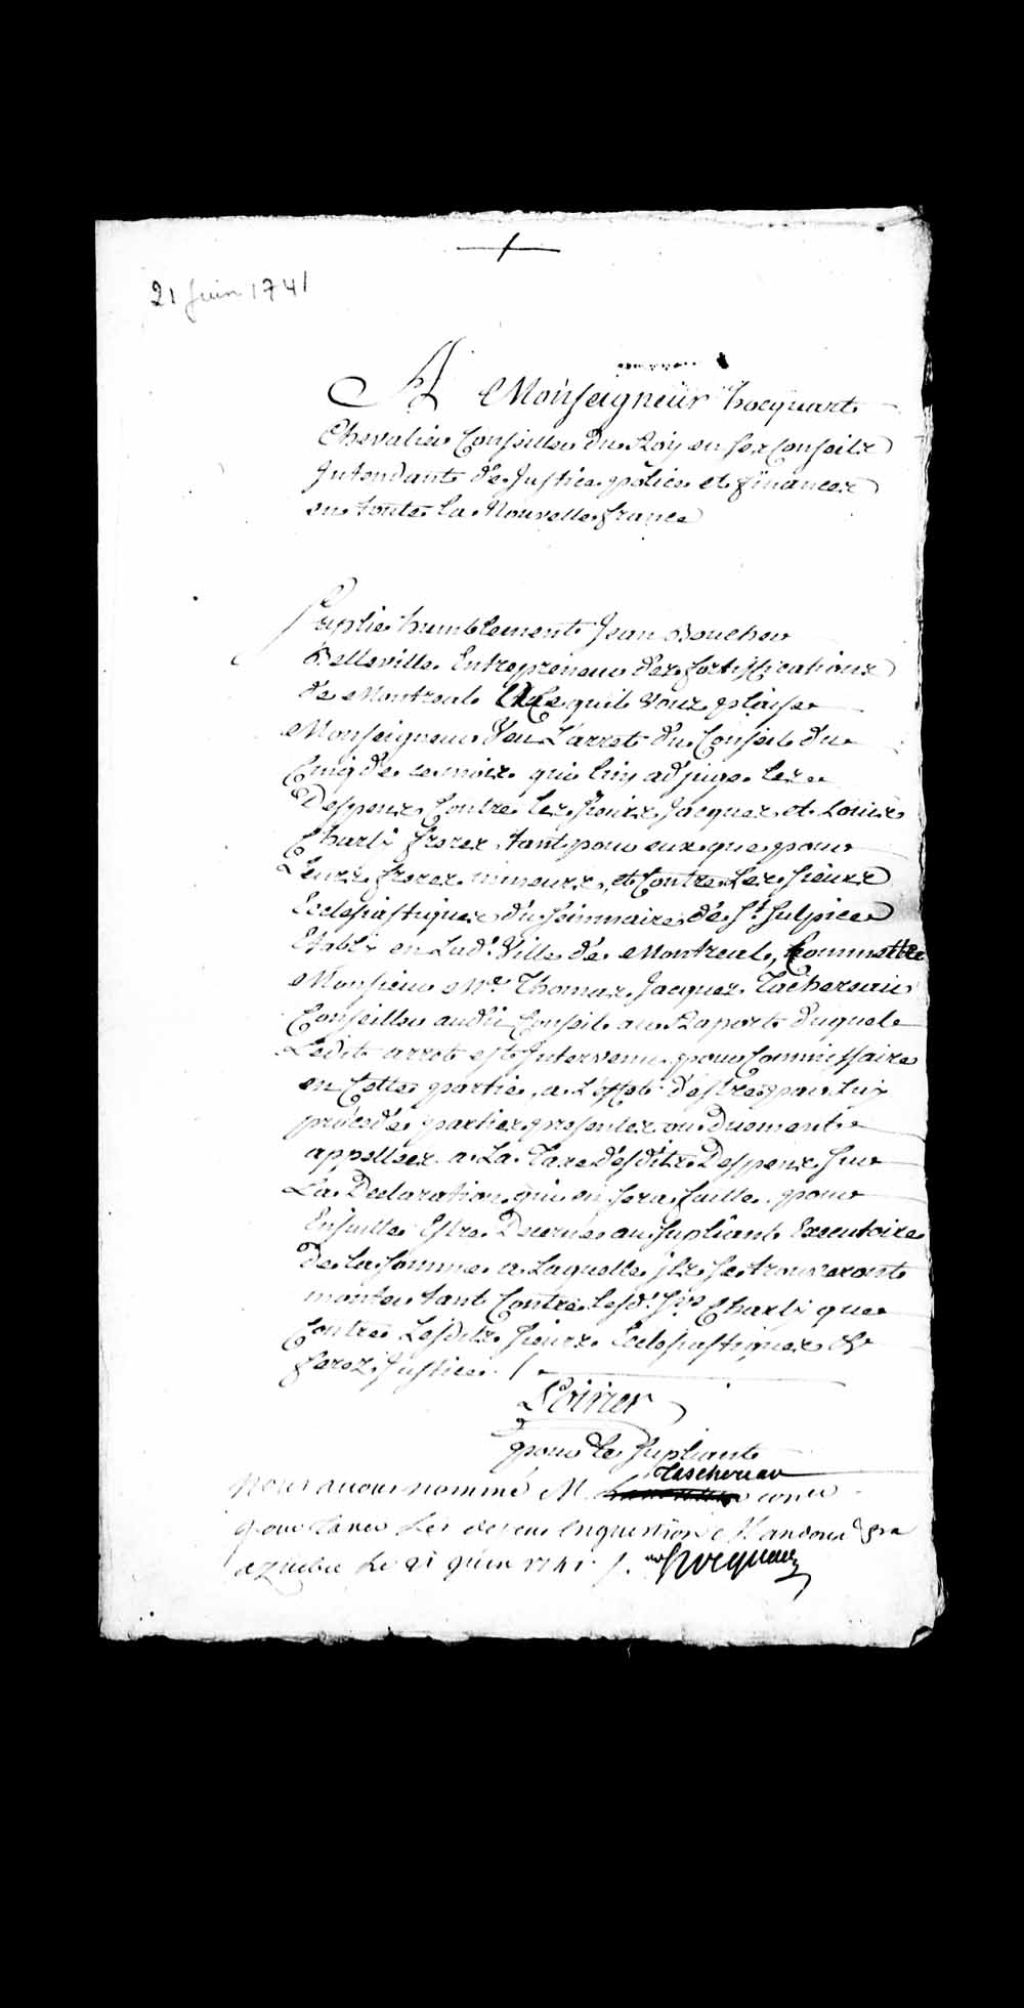 21 Juin 1741
A Monseigneur hocquart
Chevalier Conseiller du Roy en ses Conseils
Intendant de Justice police et finances
en toute la Nouvelle france
Suplie humblement Jean Boucher
Belleville Entrepreneur des fortiffications
de Montreal quil vous plaise
Monseigneur Veu L'arrest du Conseil du
Cinq de ce mois qui luy adjuge les
Depens Contre les Sieurs Jacques et Louis
Charly freres tant pour eux que pour
Leurs freres mineurs, et Contre Les Sieurs
Eclesiastiques du Seminaire de St. Sulpice
Etably en Lad. Ville de Montreal, Commettre
Monsieur Me. Thomas Jacques Tachereau
Conseiller audit Conseil au Raport duquel
Ledit arrest est Intervenu pour Commissaire
en Cette partie, a L'effet d'estre par luy
procedé parties presentes ou Duement
appellées a La Taxe desdits Depens sur
La Declaration qui en sera faitte pour
Ensuitte Estre Decerné au Supliant Executoire
de la somme a Laquelle ils se trouveront
monter tant Contre lesd. Srs Charly que
Contre Lesdits Sieurs Eclesiastiques &
ferez Justice
Poirier
pour le Supliant
Taschereau
Nous avons nommé M. coner
pour taxer Les depens En question
a quebec Le 21 juin 1741
Hocquart